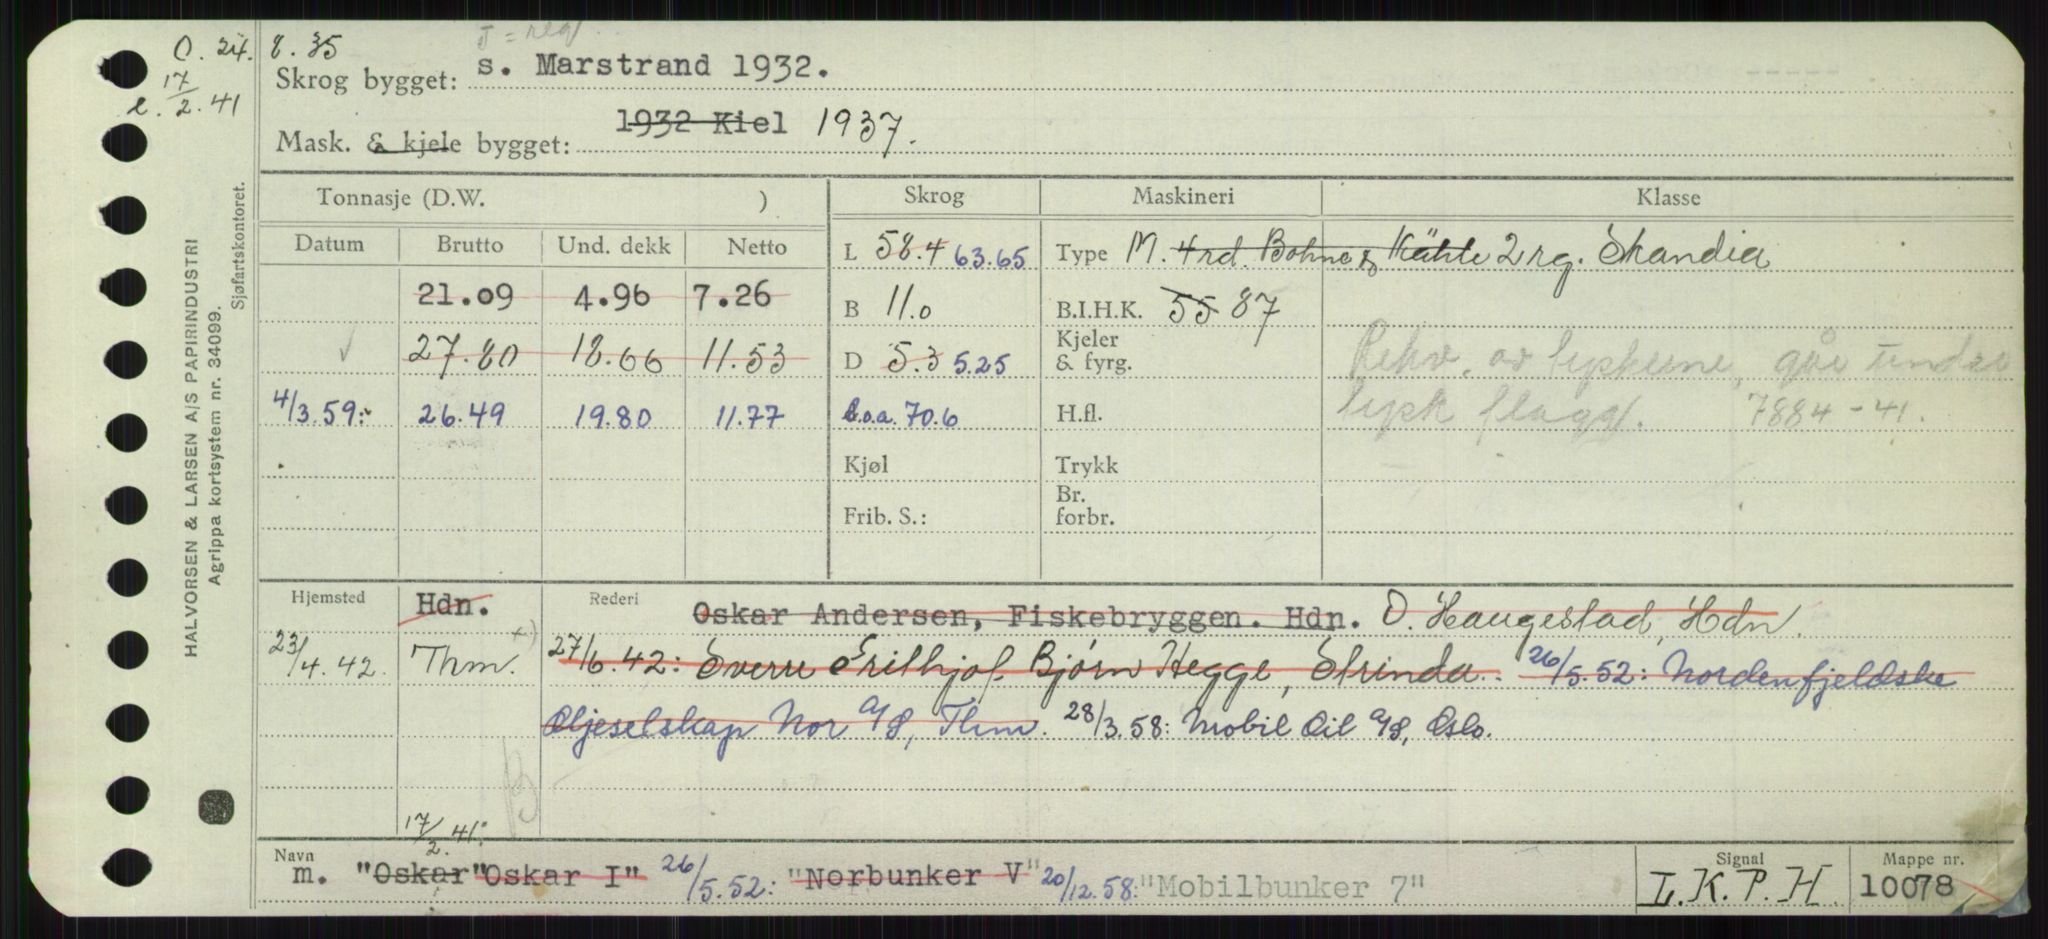 O. 24. 8. 35
17/2. 41
Skrog bygget: s. Marstrand 1932.
Mask. & kjele bygget: 1932 Kiel 1937.
HALVORSEN & LARSEN A/S PAPIRINDUSTRI
Agrippa kortsystem nr. 34099. Sjøfartskontoret.
Tonnasje (D.W. ) Skrog Maskineri Klasse
Datum Brutto Und. dekk Netto L 58.4 63.65 Type M. 4rd. Bohne & Kähle 2 rg. Skandia
21.09 4.96 7.26 B 11.0 B.I.H.K. 55 87
27.80 18.66 11.53 D 5.3 5.25 Kjeler & fyrg. Rekv. av tyskerne, går under
4/3.59: 26.49 19.80 11.77 L.o.a. 70.6 H.fl. tysk flagg. 7884-41.
Kjøl Trykk
Frib. S.: Br. forbr.
Hjemsted Hdn. Rederi Oskar Andersen, Fiskebryggen. Hdn. O. Haugestad, Hdn.
23/4.42. Thm. +) 27/6.42: Sverre Frithjof Bjørn Hegge, Strinda. 26/5.52: Nordenfjeldske
Oljeselskap Nor A/S, Thm. 28/3.58: Mobil Oil A/S, Oslo.
B
17/2.41:
Navn Signal Mappe nr.
m. "Oskar" "Oskar I" 26/5.52: "Norbunker V" 20/12.58: "Mobilbunker 7" L.K.P.H. 10078